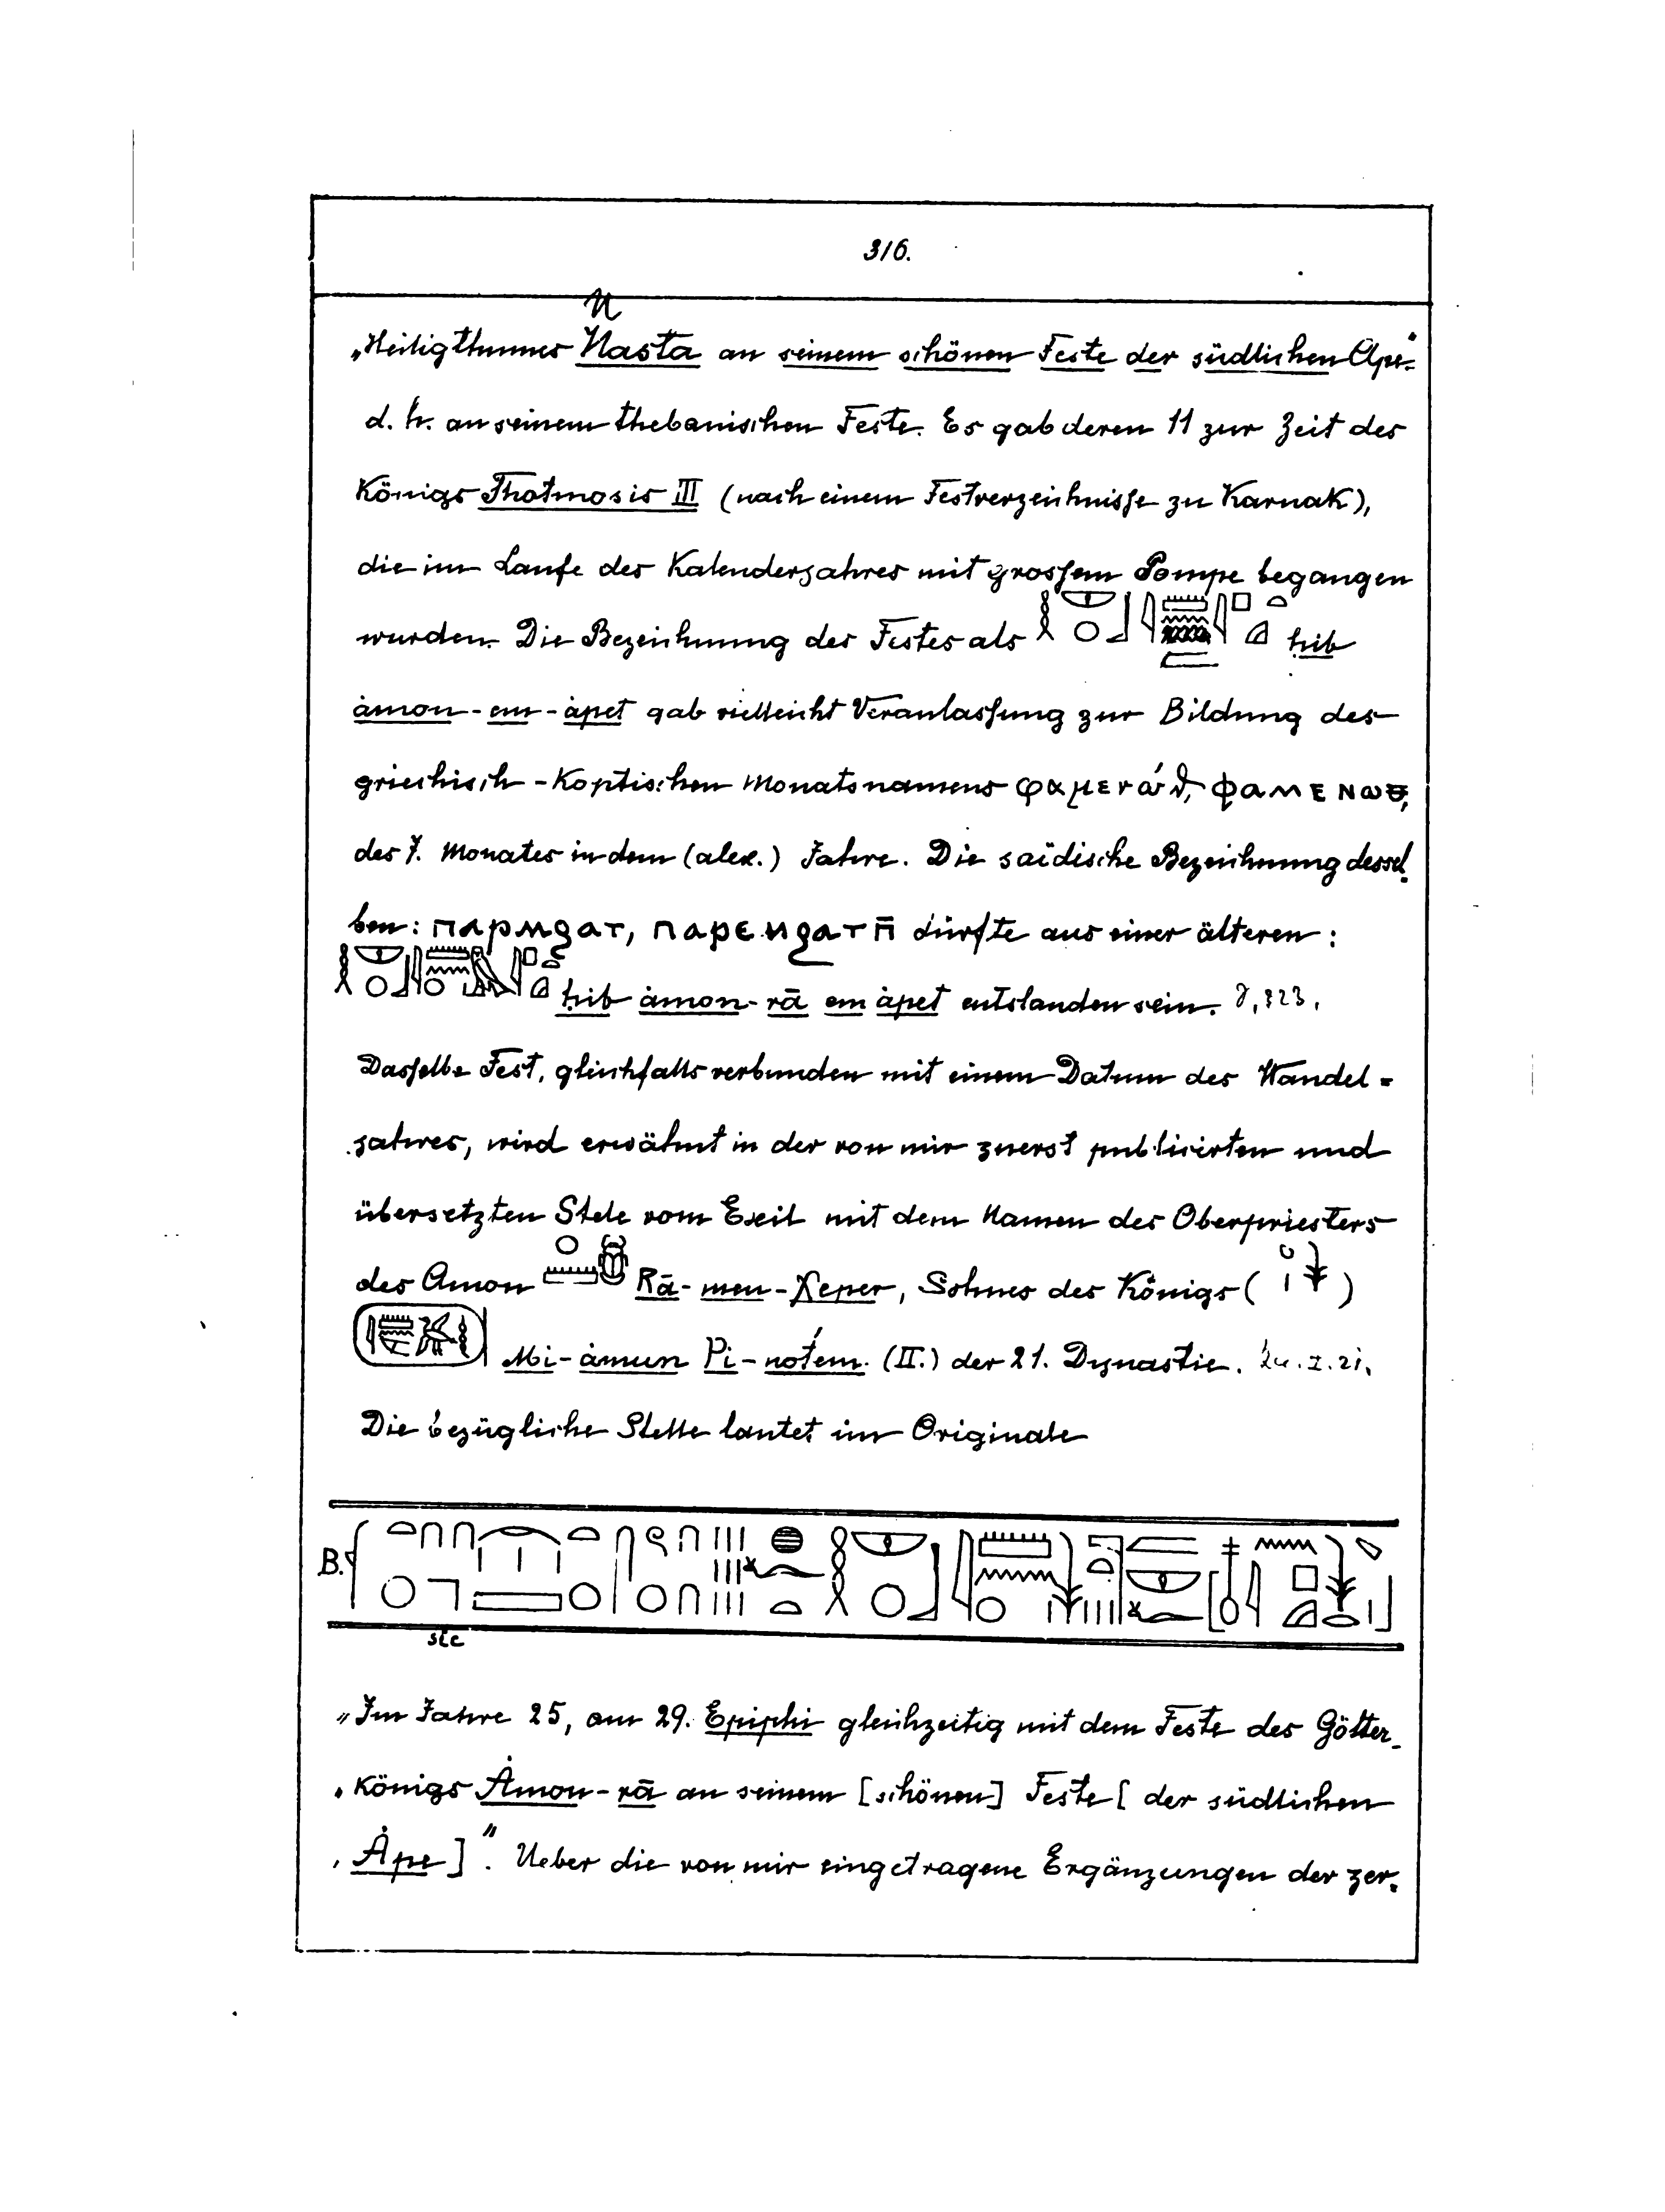 316.
„Heiligthumes Nasta an seinem schönen Feste der südlichen Ape“
d. h. an seinem thebanischen Feste. Es gab deren 11 zur Zeit des
Königs Thotmosis III (nach einem Festverzeichnisse zu Karnak),
die im Laufe des Kalenderjahres mit grossem Pompe begangen
wurden. Die Bezeichnung des Festes als ḥib
àmon-em-àpet gab vielleicht Veranlassung zur Bildung des
griechisch-koptischen Monatsnamens φαμενώθ, ⲫⲁⲙⲉⲛⲱⲑ,
des 7. Monates in dem (alex.) Jahre. Die saïdische Bezeichnung dessel-
ben: ⲡⲁⲣⲙϩⲁⲧ, ⲡⲁⲣⲉⲙϩⲁⲧⲡ̄ dürfte aus einer älteren:
ḥib àmon-rā em àpet entstanden sein.
Dasselbe Fest, gleichfalls verbunden mit einem Datum des Wandel-
jahres, wird erwähnt in der von mir zuerst publicirten und
übersetzten Stele vom Exil mit dem Namen des Oberpriesters
des Amon Rā-men-χeper, Sohnes des Königs ( )
Mi-àmun Pi-notem (II.) der 21. Dynastie.
Die bezügliche Stelle lautet im Originale
B.
sic
„Im Jahre 25, am 29. Epiphi gleichzeitig mit dem Feste des Götter-
„königs Àmon-rā an seinem [schönen] Feste [der südlichen
„Àpe]“. Ueber die von mir eingetragene Ergänzungen der zer-